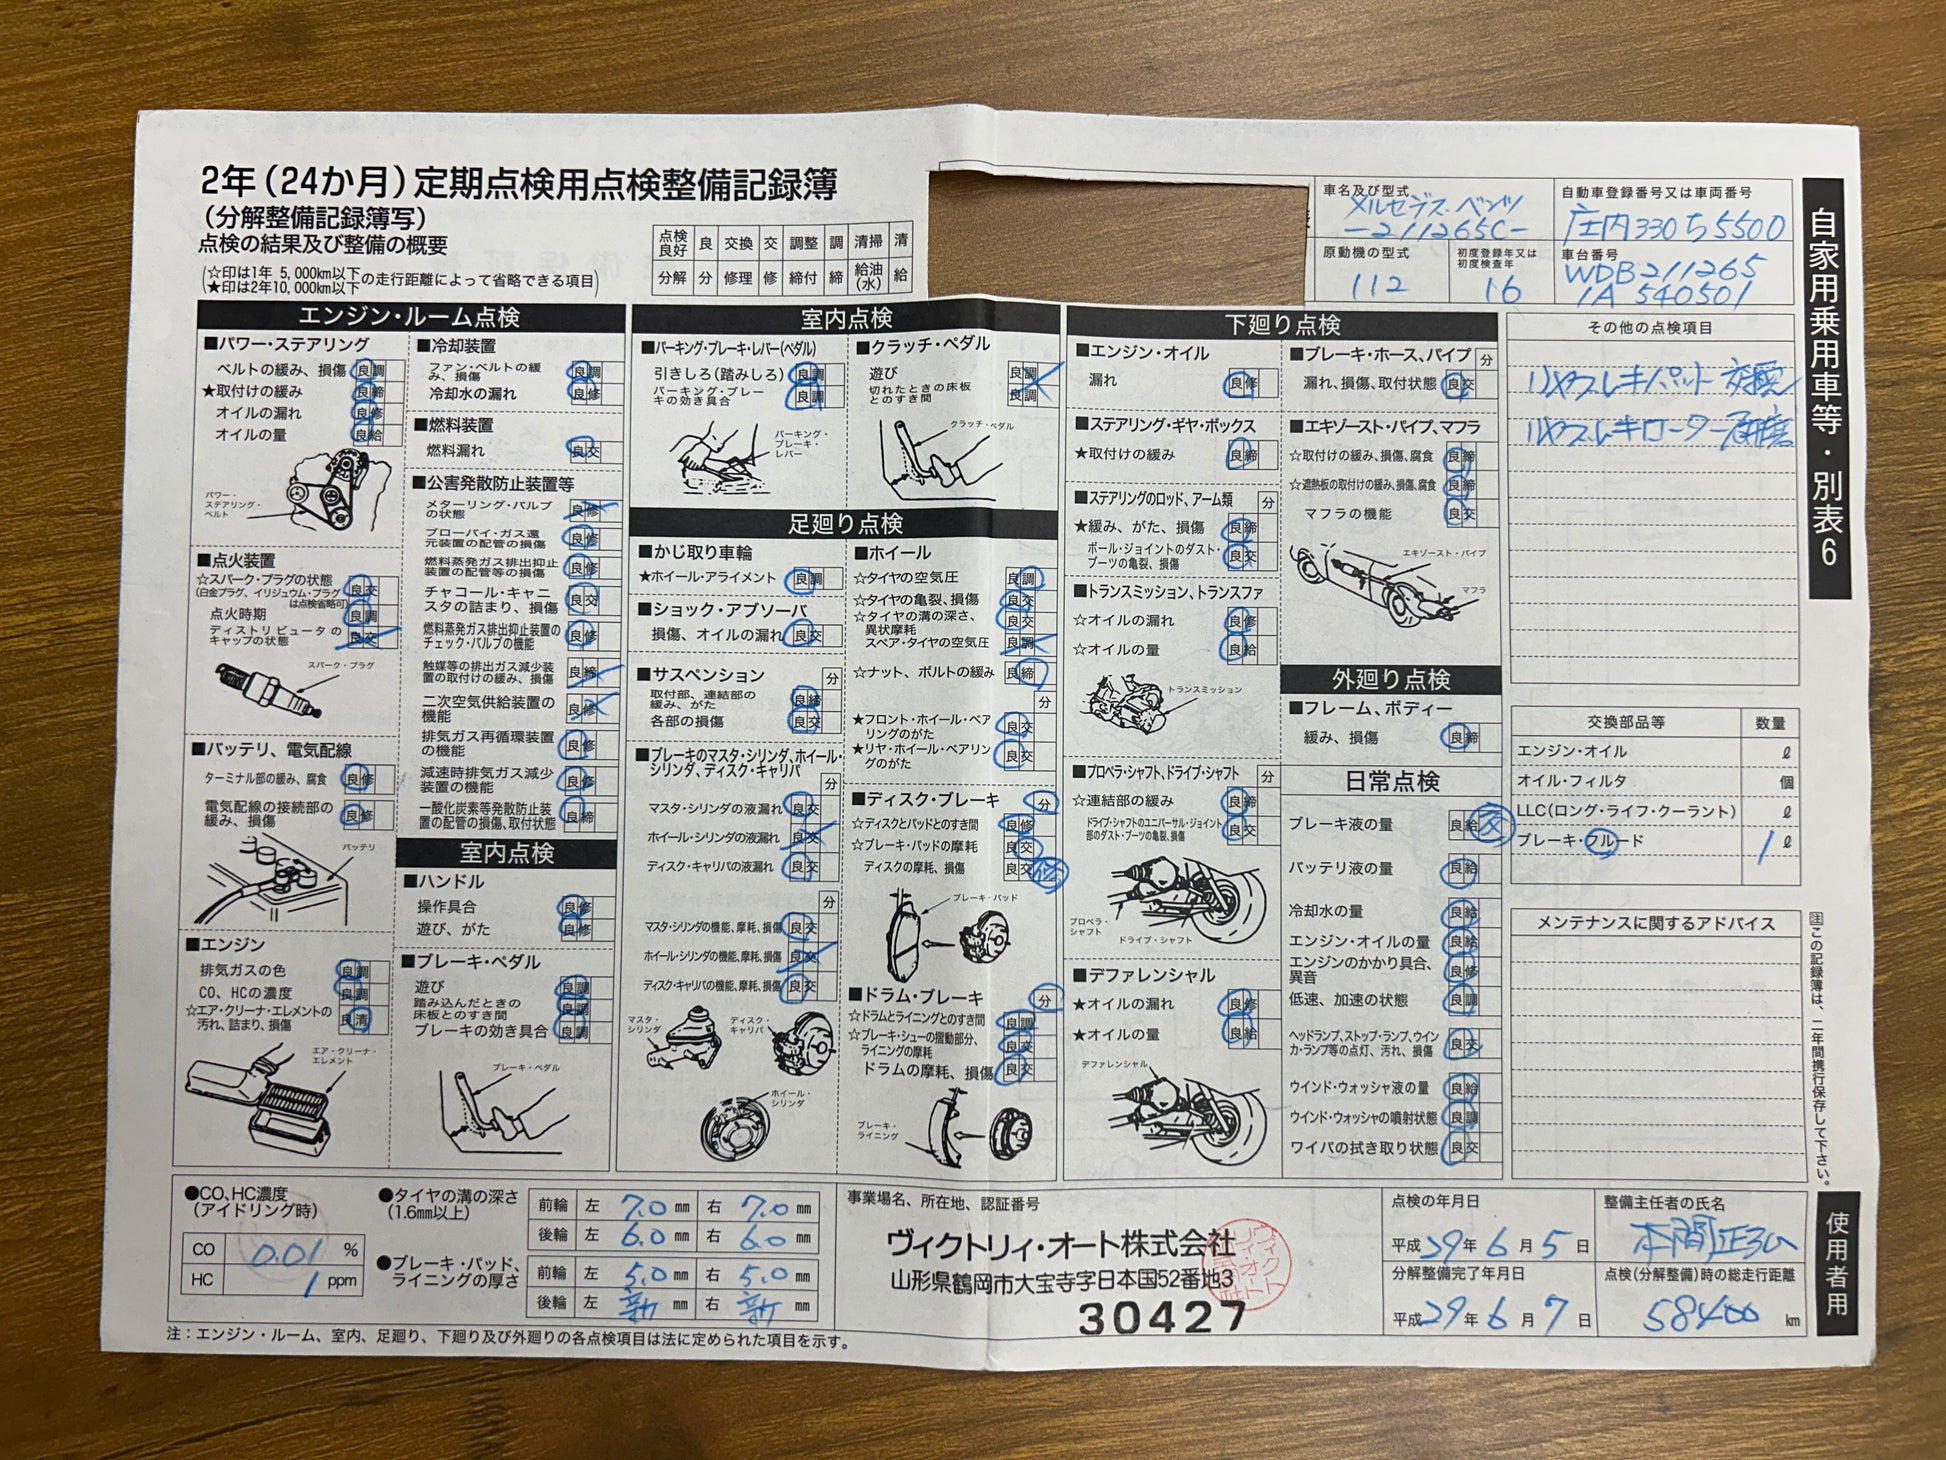 2年(24か月)定期点検用点検整備記録簿
(分解整備記録簿写)
点検の結果及び整備の概要
(☆印は1年 5,000km以下
★印は2年10,000km以下の走行距離によって省略できる項目)
点検良好 良 交換 交 調整 調 清掃 清
分解 分 修理 修 締付 締 給油(水) 給
車名及び型式
メルセデス・ベンツ
-211265C-
自動車登録番号又は車両番号
庄内330ち5500
原動機の型式
112
初度登録年又は初度検査年
16
車台番号
WDB211265
1A 540501
自家用乗用車等・別表6
エンジン・ルーム点検
■パワー・ステアリング
ベルトの緩み、損傷 良 調
★取付けの緩み 良 締
オイルの漏れ 良 修
オイルの量 良 給
パワー・ステアリング・ベルト
■点火装置
☆スパーク・プラグの状態 良 交
(白金プラグ、イリジュウム・プラグは点検省略可)
点火時期 良 調
ディストリビュータのキャップの状態 良 交
スパーク・プラグ
■バッテリ、電気配線
ターミナル部の緩み、腐食 良 修
電気配線の接続部の緩み、損傷 良 修
バッテリ
■エンジン
排気ガスの色 良 調
CO、HCの濃度 良 調
☆エア・クリーナ・エレメントの汚れ、詰まり、損傷 良 清
エア・クリーナ・エレメント
■冷却装置
ファン・ベルトの緩み、損傷 良 調
冷却水の漏れ 良 修
■燃料装置
燃料漏れ 良 交
■公害発散防止装置等
メターリング・バルブの状態 良 修
ブローバイ・ガス還元装置の配管の損傷 良 修
燃料蒸発ガス排出抑止装置の配管等の損傷 良 修
チャコール・キャニスタの詰まり、損傷 良 交
燃料蒸発ガス排出抑止装置のチェック・バルブの機能 良 修
触媒等の排出ガス減少装置の取付けの緩み、損傷 良 締
二次空気供給装置の機能 良 修
排気ガス再循環装置の機能 良 修
減速時排気ガス減少装置の機能 良 修
一酸化炭素等発散防止装置の配管の損傷、取付状態 良 締
室内点検
■ハンドル
操作具合 良 修
遊び、がた 良 修
■ブレーキ・ペダル
遊び 良 調
踏み込んだときの床板とのすき間 良 調
ブレーキの効き具合 良 調
ブレーキ・ペダル
室内点検
■パーキング・ブレーキ・レバー(ペダル)
引きしろ(踏みしろ) 良 調
パーキング・ブレーキの効き具合 良 調
パーキング・ブレーキ・レバー
■クラッチ・ペダル
遊び 良 調
切れたときの床板とのすき間 良 調
クラッチ・ペダル
足廻り点検
■かじ取り車輪
★ホイール・アライメント 良 調
■ショック・アブソーバ
損傷、オイルの漏れ 良 交
■サスペンション 分
取付部、連結部の緩み、がた 良 締
各部の損傷 良 交
■ブレーキのマスタ・シリンダ、ホイール・シリンダ、ディスク・キャリパ 分
マスタ・シリンダの液漏れ 良 交
ホイール・シリンダの液漏れ 良 交
ディスク・キャリパの液漏れ 良 交
分
マスタ・シリンダの機能、摩耗、損傷 良 交
ホイール・シリンダの機能、摩耗、損傷 良 交
ディスク・キャリパの機能、摩耗、損傷 良 交
マスタ・シリンダ
ディスク・キャリパ
ホイール・シリンダ
■ホイール
☆タイヤの空気圧 良 調
☆タイヤの亀裂、損傷 良 交
☆タイヤの溝の深さ、異状摩耗 良 交
スペア・タイヤの空気圧 良 調
☆ナット、ボルトの緩み 良 締
分
★フロント・ホイール・ベアリングのがた 良 交
★リヤ・ホイール・ベアリングのがた 良 交
■ディスク・ブレーキ 分
☆ディスクとパッドとのすき間 良 修
☆ブレーキ・パッドの摩耗 良 交
ディスクの摩耗、損傷 良 交 修
ブレーキ・パッド
■ドラム・ブレーキ 分
☆ドラムとライニングとのすき間 良 調
☆ブレーキ・シューの摺動部分、ライニングの摩耗 良 交
ドラムの摩耗、損傷 良 交
ブレーキ・ライニング
下廻り点検
■エンジン・オイル
漏れ 良 修
■ステアリング・ギヤ・ボックス
★取付けの緩み 良 締
■ステアリングのロッド、アーム類 分
★緩み、がた、損傷 良 締
ボール・ジョイントのダスト・ブーツの亀裂、損傷 良 交
■トランスミッション、トランスファ
☆オイルの漏れ 良 修
☆オイルの量 良 給
トランスミッション
■プロペラ・シャフト、ドライブ・シャフト 分
☆連結部の緩み 良 締
ドライブ・シャフトのユニバーサル・ジョイント部のダスト・ブーツの亀裂、損傷 良 交
プロペラ・シャフト
ドライブ・シャフト
■デファレンシャル
★オイルの漏れ 良 修
★オイルの量 良 給
デファレンシャル
■ブレーキ・ホース、パイプ 分
漏れ、損傷、取付状態 良 交
■エキゾースト・パイプ、マフラ
☆取付けの緩み、損傷、腐食 良 締
☆遮熱板の取付けの緩み、損傷、腐食 良 締
マフラの機能 良 交
エキゾースト・パイプ
マフラ
外廻り点検
■フレーム、ボディー
緩み、損傷 良 締
日常点検
ブレーキ液の量 良 給 交
バッテリ液の量 良 給
冷却水の量 良 給
エンジン・オイルの量 良 給
エンジンのかかり具合、異音 良 修
低速、加速の状態 良 調
ヘッドランプ、ストップ・ランプ、ウインカ・ランプ等の点灯、汚れ、損傷 良 交
ウインド・ウォッシャ液の量 良 給
ウインド・ウォッシャの噴射状態 良 調
ワイパの拭き取り状態 良 交
その他の点検項目
リヤブレーキパット 交換
リヤブレーキローター研磨
交換部品等 数量
エンジン・オイル ℓ
オイル・フィルタ 個
LLC(ロング・ライフ・クーラント) ℓ
ブレーキ・フルード 1 ℓ
メンテナンスに関するアドバイス
注 この記録簿は、二年間携行保存して下さい。
●CO、HC濃度
(アイドリング時)
CO 0.01 %
HC 1 ppm
●タイヤの溝の深さ
(1.6mm以上)
前輪 左 7.0 mm 右 7.0 mm
後輪 左 6.0 mm 右 6.0 mm
●ブレーキ・パッド、ライニングの厚さ
前輪 左 5.0 mm 右 5.0 mm
後輪 左 新 mm 右 新 mm
事業場名、所在地、認証番号
ヴィクトリィ・オート株式会社
山形県鶴岡市大宝寺字日本国52番地3
30427
点検の年月日
平成29年6月5日
分解整備完了年月日
平成29年6月7日
整備主任者の氏名
本間
点検(分解整備)時の総走行距離
58400 km
使用者用
注：エンジン・ルーム、室内、足廻り、下廻り及び外廻りの各点検項目は法に定められた項目を示す。